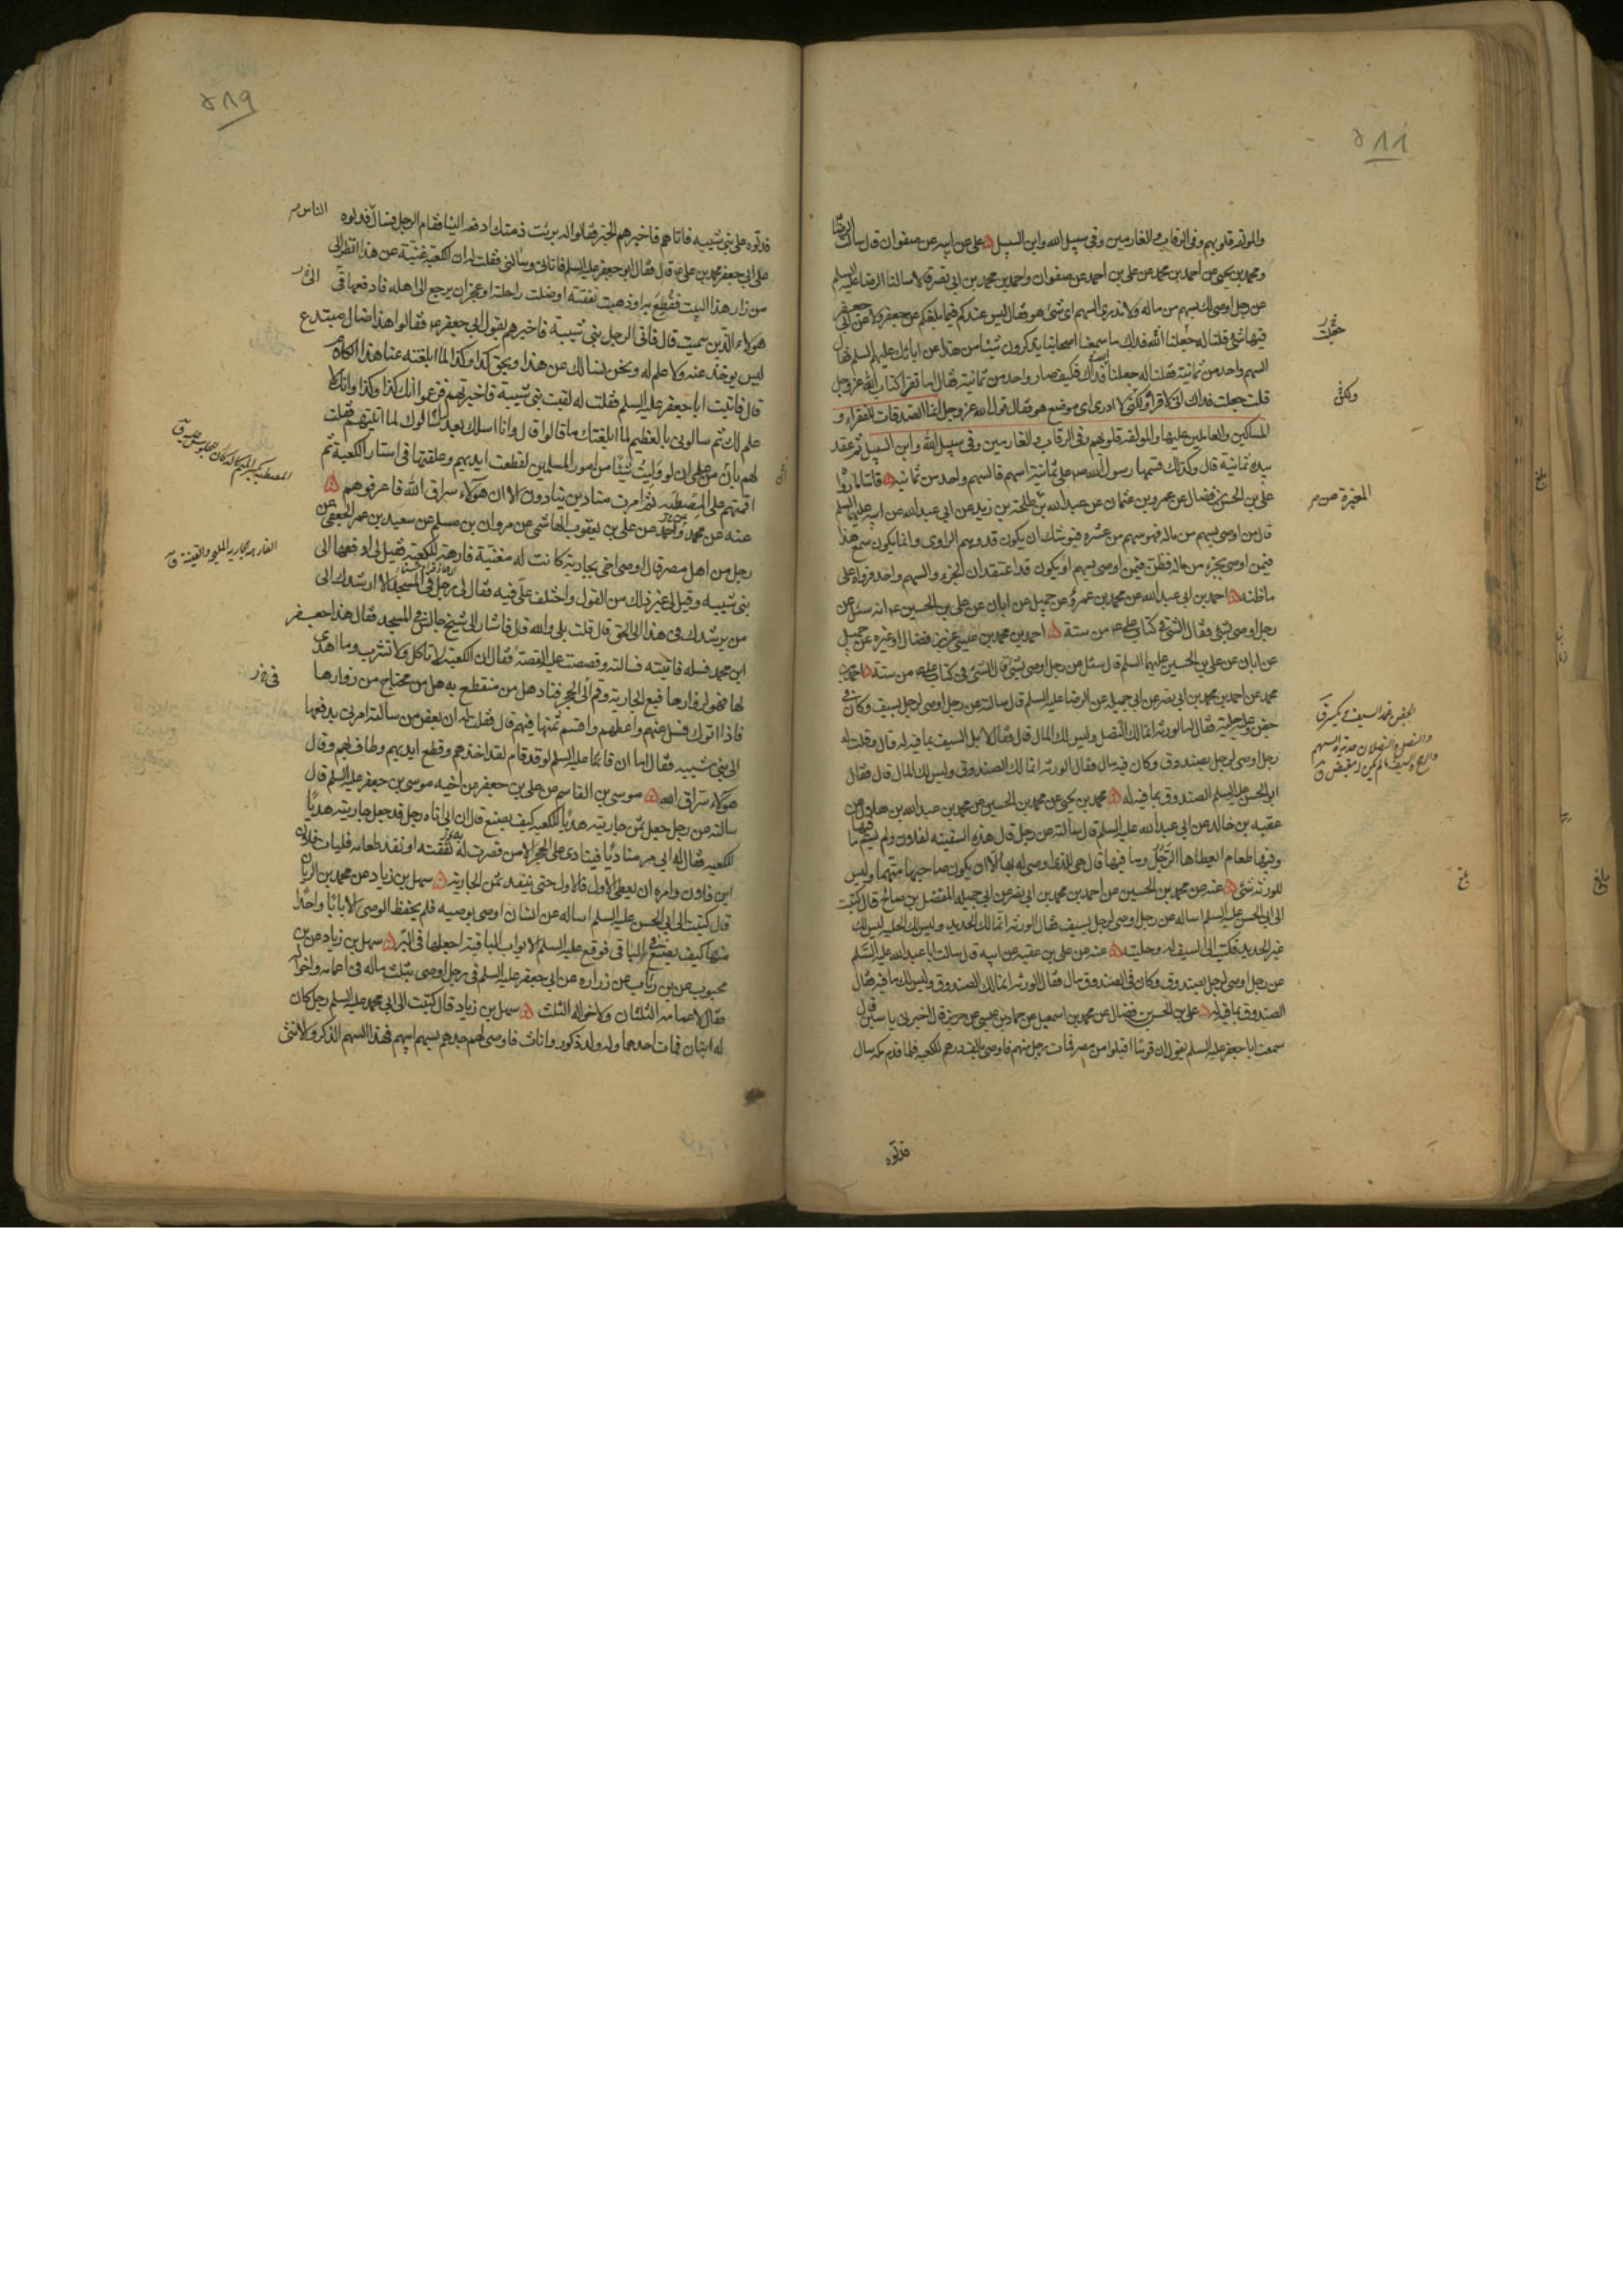 ٥٨٨
والمؤلفة قلوبهم وفي الرقاب والغارمين وفي سبيل الله وابن السبيل علي عن ابيه عن صفوان قال سالت الرضا
ومحمد بن يحيى عن احمد بن محمد عن علي بن احمد عن صفوان واحمد بن محمد بن ابي نصر قالا سالنا الرضا عليه السلم
عن رجل اوصى لك بسهم من ماله ولا ندري السهم اي شئ هو فقال ليس عندكم فيما بلغكم عن جعفر ولا عن ابي جعفر
فيها شئ قلنا له جعلنا الله فداك ما سمعنا اصحابنا يذكرون شيئا من هذا عن ابائك عليهم السلم فقال
السهم واحد من ثمانية فقلنا له جعلنا فداك فكيف صار واحد من ثمانية فقال اما تقرا كتاب الله عز وجل
قلت جعلت فداك اني لاقرأ ولكني لا ادري اي موضع هو فقال قول الله عز وجل انما الصدقات للفقراء و
المساكين والعاملين عليها والمؤلفة قلوبهم وفي الرقاب والغارمين وفي سبيل الله وابن السبيل ثم عقد
بيده ثمانية قال وكذلك قسمها رسول الله ص على ثمانية اسهم فالسهم واحد من ثمانية فاما ما رواه
علي بن الحسن بن فضال عن عمرو بن عثمان عن عبد الله بن طلحة بن زيد عن ابي عبد الله عن ابيه عليهما السلم
قال من اوصى بسهم من ماله فهو سهم من عشرة فيوشك ان يكون قد وهم الراوي وانما يكون سمع هذا
فيمن اوصى بجزء من ماله فظن فيمن اوصى بسهم او يكون قد اعتقد ان الجزء والسهم واحد فرواه على
ما ظنه احمد بن ابي عبد الله عن محمد بن عمرو عن جميل عن ابان عن علي بن الحسين ع انه سئل عن
رجل اوصى بشئ فقال الشئ في كتاب علي ع من ستة احمد بن محمد بن عيسى عن بن فضال او غيره عن جميل
عن ابان عن علي بن الحسين عليهما السلم قال سئل عن رجل اوصى بشئ قال الشئ في كتاب علي ع من ستة احمد بن
محمد عن احمد بن محمد بن ابي نصر عن ابي جميلة عن الرضا عليه السلم قال سالته عن رجل اوصى لرجل بسيف وكان في
جفن وعليه حلية فقال له الورثة انما لك النصل وليس لك المال قال فقال لا بل السيف بما فيه له قال وقلت له
رجل اوصى لرجل بصندوق وكان فيه مال فقال الورثة انما لك الصندوق وليس لك المال قال فقال
ابو الحسن عليه السلم الصندوق بما فيه له محمد بن يحيى عن محمد بن الحسين عن محمد بن عبد الله بن هلال عن
عقبة بن خالد عن ابي عبد الله عليه السلم قال سالته عن رجل قال هذه السفينة لفلان ولم يسم ما فيها
وفيها طعام ايعطاها الرجل وما فيها قال هي للذي اوصى له بها الا ان يكون صاحبها متهما وليس
للورثة شئ عنه عن محمد بن الحسين عن احمد بن محمد بن ابي نصر عن ابي جميله المفضل بن صالح قال كتبت
الى ابي الحسن عليه السلم اساله عن رجل اوصى لرجل بسيف فقال الورثة انما لك الحديد وليس لك الحلية ليس لك
غير الحديد فكتب الى السيف له وحليته عنه عن علي بن عقبة عن ابيه قال سالت ابا عبد الله عليه السلم
عن رجل اوصى لرجل بصندوق وكان في الصندوق مال فقال الورثة انما لك الصندوق وليس لك ما فيه فقال
الصندوق بما فيه له علي بن الحسن بن فضال عن محمد بن اسمعيل عن حماد بن عيسى عن حريز قال اخبرني ياسين قال
سمعت ابا جعفر عليه السلم يقول ان قوما اقبلوا من مصر فمات رجل منهم فاوصى بالف درهم للكعبة فلما قدم مكة سال
فدلوه
جعلت
ولكني
المغيرة عن
بلغ
٥٨٩
فدلوه على بني شيبه فاتاهم فاخبرهم الخبر فقالوا له برئت ذمتك ادفعه الينا فقام الرجل فسال فدلوه
الناس
على ابي جعفر محمد بن علي ع قال فقال ابو جعفر عليه السلم فاتاني وسالني فقلت له ان الكعبة غنية عن هذا انظر الى
من زار هذا البيت فقطع به او ذهبت نفقته او ضلت راحلته او عجز ان يرجع الى اهله فادفعها
هؤلاء الذين سميت قال فاتى الرجل بني شيبة فاخبرهم بقول ابي جعفر ع فقالوا هذا ضال مبتدع
ليس يوخذ عنه ولا علم له ونحن نسالك عن هذا وبحق كذا وكذا لما ابلغته عنا هذا الكلام
قال فاتيت ابا جعفر عليه السلم فقلت له لقيت بني شيبة فاخبرتهم فزعموا انك كذا وكذا وانك لا
علم لك ثم سالوني بالعظيم لما ابلغتك ما قالوا قال وانا اسلك بعد سالوك لما اتيتهم فقلت
لهم بان من علمي ان لو وليت شيئا من امور المسلمين لقطعت ايديهم وعلقتها في استار الكعبة ثم
اقمتهم على المصطبة ثم امرت مناديا ينادون الا ان هؤلاء سراق الله فاعرفوهم
عنه عن محمد واحمد عن علي بن يعقوب الهاشمي عن مروان بن مسلم عن سعيد بن عمر الجعفي عن
رجل من اهل مصر قال اوصى اخي بجارية كانت له مغنية فارهة للكعبة فقيل لي ادفعها الى
بني شيبه وقيل لي غير ذلك من القول واختلف علي فيه فقال لي رجل في المسجد الا ارشدك الى
من يرشدك في هذا الى الحق قال قلت بلى والله قال فاشار الى شيخ جالس في المسجد فقال هذا جعفر
ابن محمد فسله فاتيته فسالته وقصصت عليه القصة فقال ان الكعبة لا تاكل ولا تشرب وما اهدي
لها فهو لزوارها فبع الجارية وقم الى الحجر فناد هل من منقطع به هل من محتاج من زوارها
فاذا اتوك فسل عنهم واعطهم واقسم ثمنها فيهم قال فقلت له ان بعض من سالته امرني بدفعها
الى بني شيبه فقال اما ان قائمنا عليه السلم لو قد قام لقد اخذهم وقطع ايديهم وطاف بهم وقال
هؤلاء سراق الله موسى بن القاسم عن علي بن جعفر عن اخيه موسى بن جعفر عليه السلم قال
سالته عن رجل جعل ثمن جاريته هديا للكعبة كيف يصنع قال ان ابي اتاه رجل قد جعل جاريته هديا
للكعبه فقال له ابي مر مناديا فينادي على الحجر الا من قصرت به نفقته او نفد طعامه فليات فلان
ابن فلان وامره ان يعطي الاول فالاول حتى ينفد ثمن الجارية سهل بن زياد عن محمد بن الريان
قال كتبت الى ابي الحسن عليه السلم اساله عن انسان اوصى بوصيه فلم يحفظ الوصي الا بابا واحدا
منها كيف يصنع في الباقي فوقع عليه السلم الابواب الباقية اجعلها في البر سهل بن زياد عن بن
محبوب عن بن رئاب عن زراره عن ابي جعفر عليه السلم في رجل اوصى بثلث ماله في اعمامه واخواله
فقال لاعمامه الثلثان ولاخواله الثلث سهل بن زياد قال كتبت الى ابي محمد عليه السلم رجل كان
له ابنان فمات احدهما وله ولد ذكور واناث فاوصى لهم جدهم بسهم ابيهم فهذا السهم الذكر والانثى